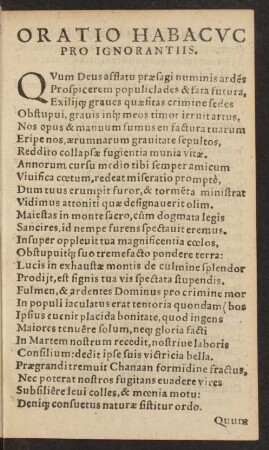 ORATIO HABACVC
PRO IGNORANTIIS.
QVum Deus afflatu præsagi numinis ardēs
Prospicerem populi clades & fata futura,
Exilijq; graues quæsitas crimine sedes
Obstupui, grauis inq; meos timor irruit artus,
Nos opus & manuum sumus en factura tuarum
Eripe nos, ærumnarum grauitate sepultos,
Reddito collapsæ fugientia munia vitæ.
Annorum cursu medio tibi semper amicum
Viuifica cœtum, redeat miseratio promptè,
Dum tuus erumpit furor, & tormēta ministrat
Vidimus attoniti quæ designauerit olim.
Maiestas in monte sacro, cùm dogmata legis
Sancires, id nempe furens spectauit eremus.
Insuper oppleuit tua magnificentia cœlos,
Obstupuitq; suo tremefacto pondere terra:
Lucis inexhaustæ montis de culmine splendor
Prodijt, est signis tua vis spectata stupendis.
Fulmen, & ardentes Dominus pro crimine mor
In populi iaculatus erat tentoria quondam (bos
Ipsius euenit placida bonitate, quod ingens
Maiores tenuêre solum, neq; gloria facti
In Martem nostrum recedit, nostriue laboris
Consilium: dedit ipse suis victricia bella.
Prægrandi tremuit Chanaan formidine fractus,
Nec poterat nostros fugitans euadere vires
Subsiliêre leui colles, & mœnia motu:
Deniq; consuetus naturæ sistitur ordo.
Quum